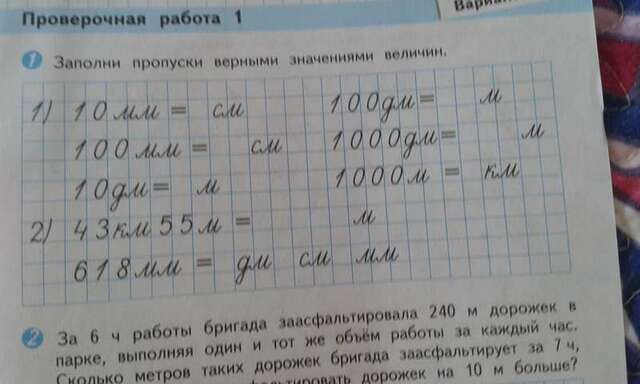 Проверочная работа 1
Вариан
1 Заполни пропуски верными значениями величин.
1) 10мм = см 100дм = м
100мм = см 1000дм = м
10дм = м 1000м = км
2) 43км 55м = м
618мм = дм см мм
2 За 6 ч работы бригада заасфальтировала 240 м дорожек в
парке, выполняя один и тот же объём работы за каждый час.
Сколько метров таких дорожек бригада заасфальтирует за 7 ч,
дорожек на 10 м больше?